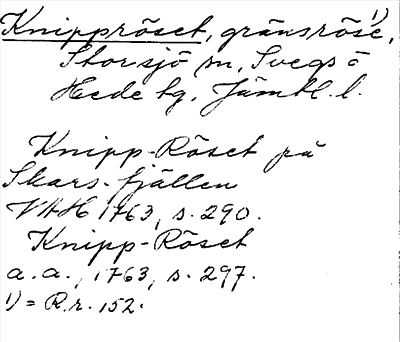 Knippröset, gränsröse, 1)
Storsjö sn, Svegs o
Hede tg, Jämtl. l.
Knipp-Röset på
Skars-fjällen
VAH 1763, s. 290.
Knipp-Röset
a. a., 1763, s. 297.
1) = R.r. 152.